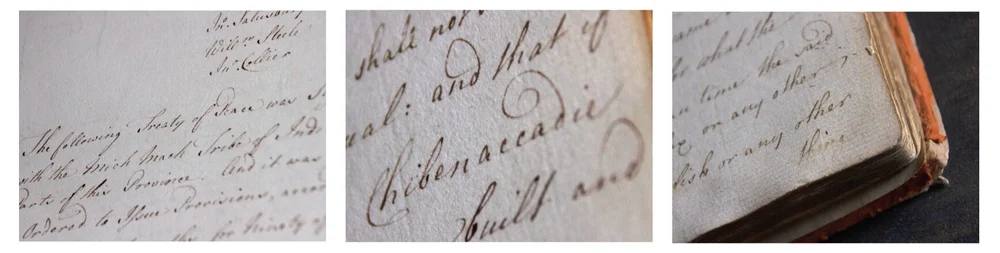 Willm Steele
Jno. Collier
The following Treaty of Peace was
with the Mick Mack Tribe of
Parts of this Province. And it was
Ordered to Issue Provisions,
for Ninety
shall not
ual: and that if
Chibenaccadie
built and
for what the
in time the said
or any other
fish or any other
thing